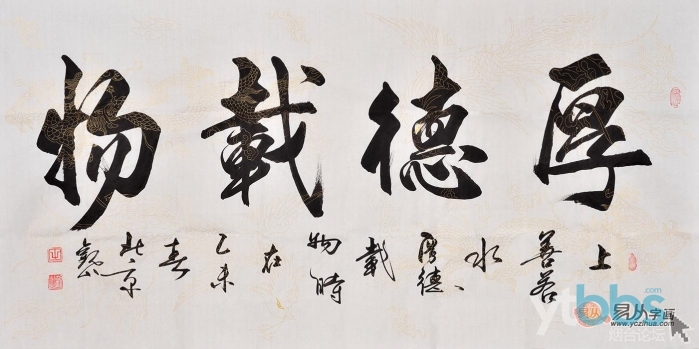 厚德載物
上善若水厚德載物時在乙未春北京
ytbbs.com
烟台论坛
易从字画
www.yczihua.com